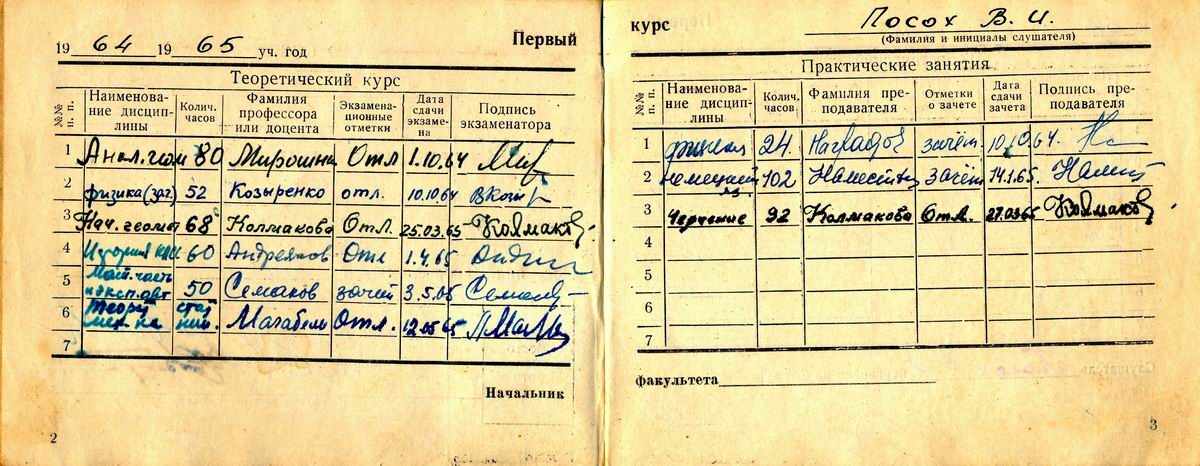 19 64 19 65 уч. год
Первый
Теоретический курс
№№ п. п. Наименова- ние дисцип- лины Колич. часов Фамилия профессора или доцента Экзамена- ционные отметки Дата сдачи экзаме- на Подпись экзаменатора
1 Анал. геом 80 Отл 1.10.64
2 физика (зач) 52 Козыренко отл. 10.10.64
3 Нач. геомет 68 Колмакова Отл. 25.03.65 Колмаков
4 История 60 Андреянов Отл 1.4.65
5 Мат. часть 50 Семаков зачёт 3.5.65
6 Отл. 12.05.65
7
Начальник
2
курс Посох В. И.
(Фамилия и инициалы слушателя)
Практические занятия
№№ п. п. Наименова- ние дисцип- лины Колич. часов Фамилия пре- подавателя Отметки о зачете Дата сдачи зачета Подпись пре- подавателя
1 физика 24 зачёт 10.10.64.
2 немецкий яз 102 зачёт 14.1.65.
3 Черчение 92 Колмакова Отл. 27.03.65 Колмаков
4
5
6
7
факультета
3